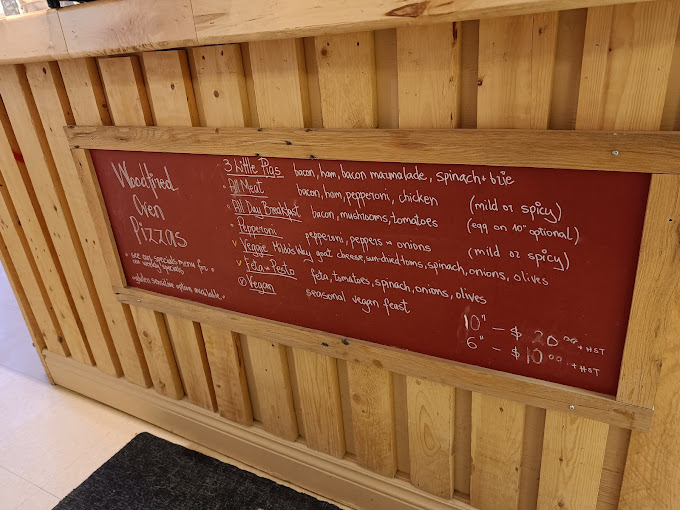 Woodfired
Oven
Pizzas
• see our specials menu for •
weekly specials
• gluten sensitive options available •
3 Little Pigs bacon, ham, bacon marmalade, spinach + brie
• All Meat bacon, ham, pepperoni, chicken (mild or spicy)
• All Day Breakfast bacon, mushrooms, tomatoes (egg on 10" optional)
• Pepperoni pepperoni, peppers + onions (mild or spicy)
v Veggie goat cheese, sun-dried toms, spinach, onions, olives
v Feta + Pesto feta, tomatoes, spinach, onions, olives
Ⓥ Vegan seasonal vegan feast
10" – $20.00 + HST
6" – $10.00 + HST